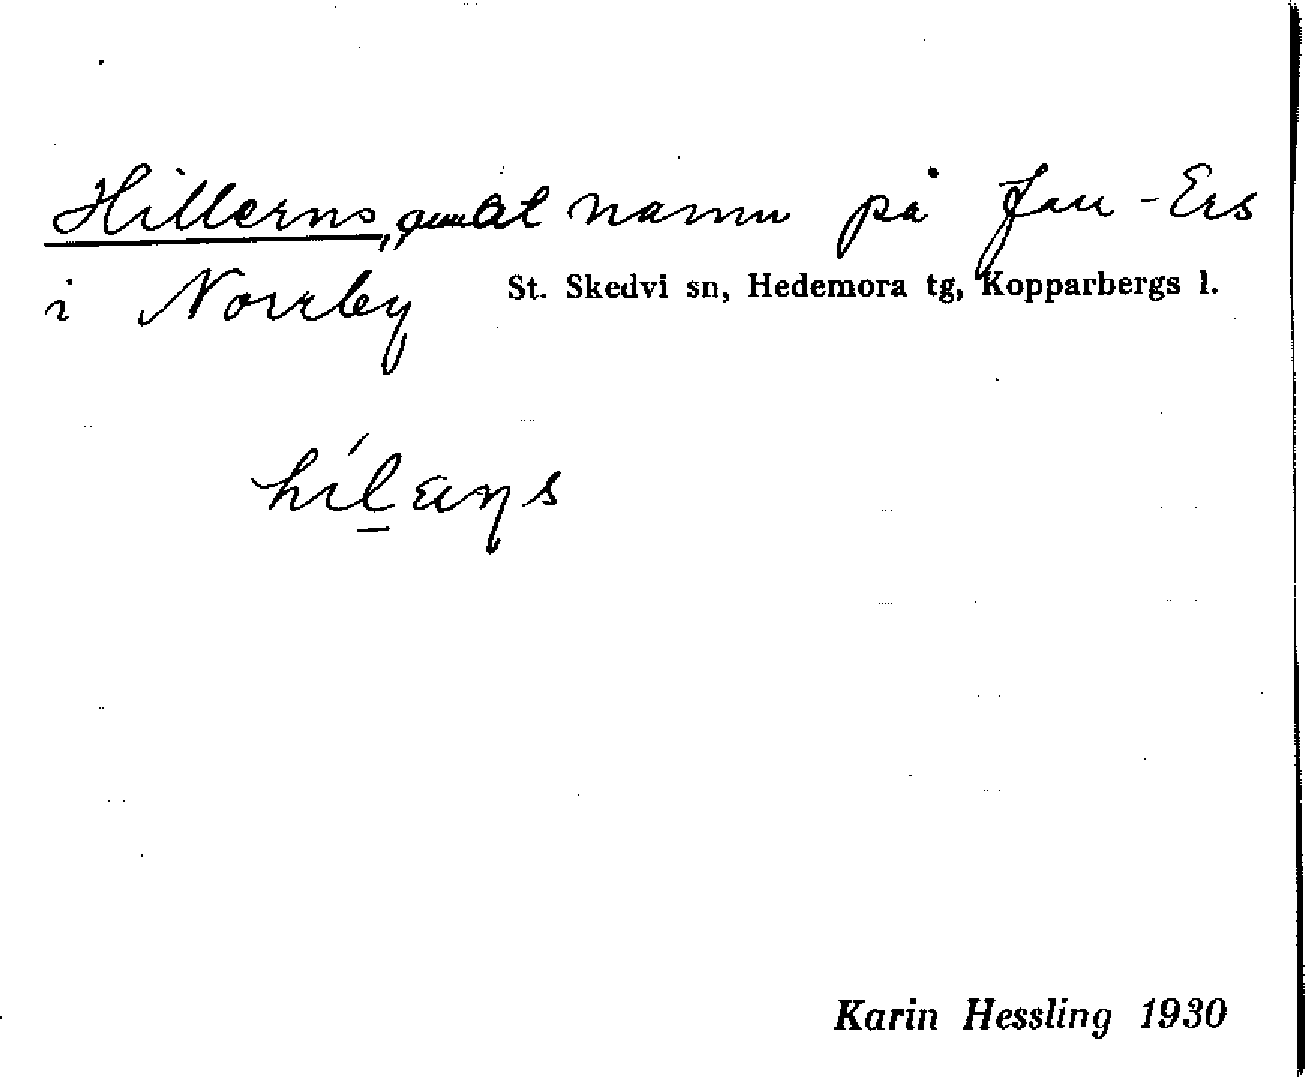 Hillerns, gmlt namn på Jan-Ers
i Norrby St. Skedvi sn, Hedemora tg, Kopparbergs l.
Karin Hessling 1930